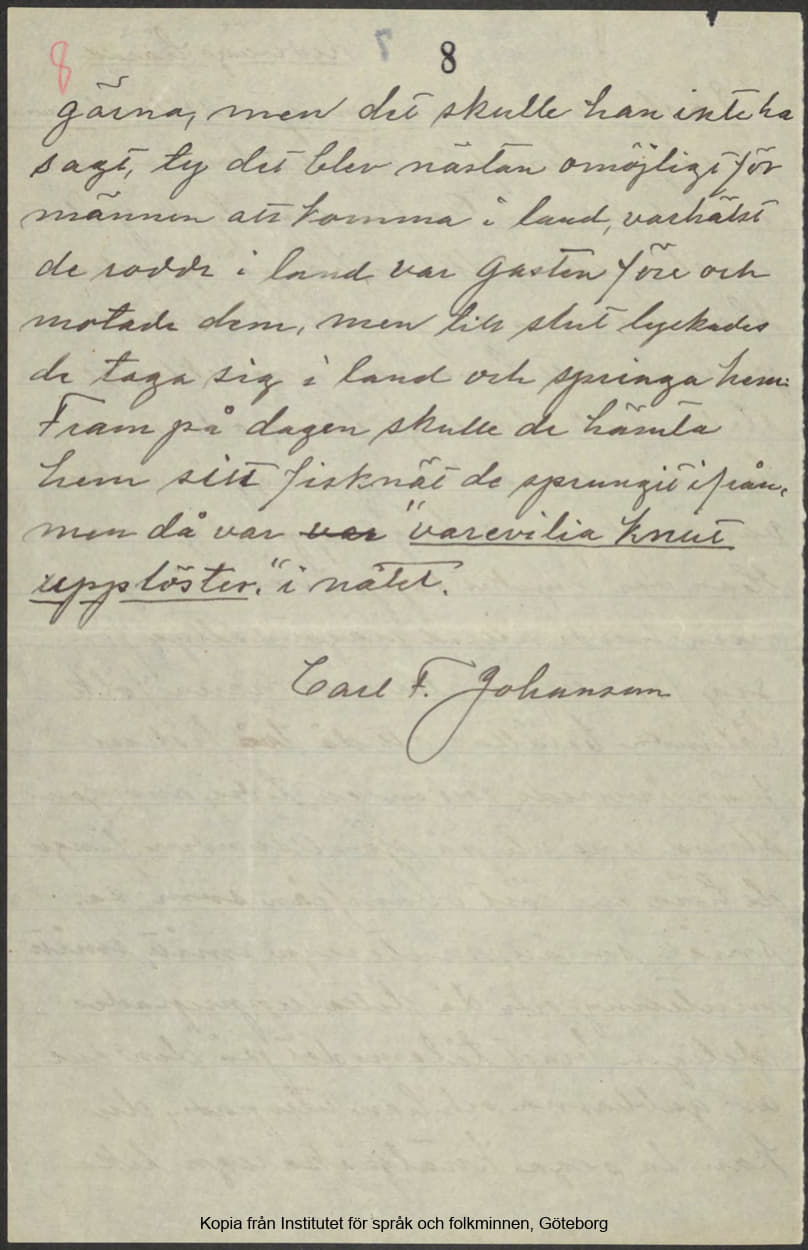 8
8
gärna, men det skulle han inte ha
sagt, ty det blev nästan omöjligt för
männen att komma i land, varhälst
de rodde i land var gasten före och
motade dem, men till slut lyckades
de taga sig i land och springa hem.
Fram på dagen skulle de hämta
hem sitt fisknät de sprungit ifrån,
men då var var "varevilia knut
upplöster." i nätet.
Carl F. Johansson
Kopia från Institutet för språk och folkminnen, Göteborg